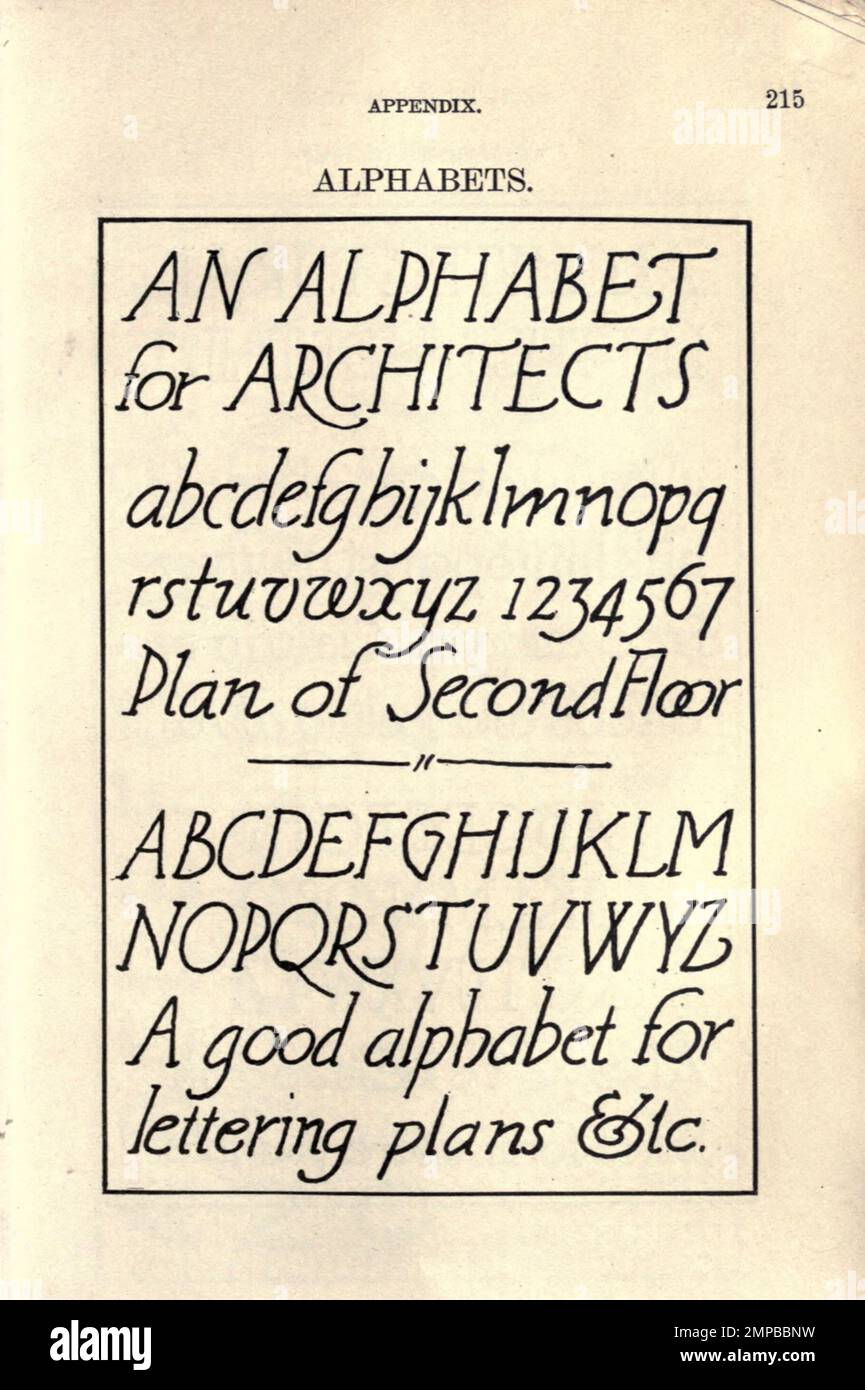 APPENDIX.
215
ALPHABETS.
AN ALPHABET
for ARCHITECTS
abcdefghijklmnopq
rstuvwxyz 1234567
Plan of Second Floor
"
ABCDEFGHIJKLM
NOPQRSTUVWYZ
A good alphabet for
lettering plans &tc.
alamy
Image ID: 2MPBBNW
www.alamy.com